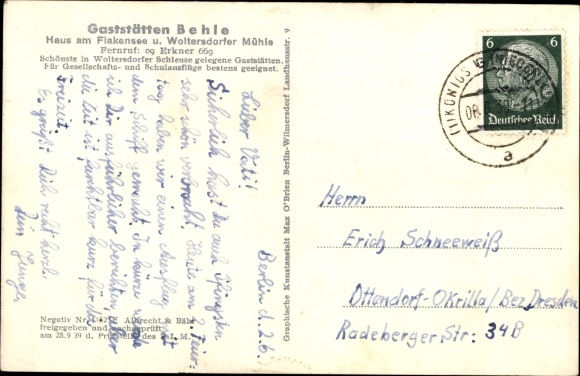 Gaststätten Behle
Haus am Flakensee u. Woltersdorfer Mühle
Fernruf: 09 Erkner 669
Schönste in Woltersdorfer Schleuse gelegene Gaststätten.
Für Gesellschafts- und Schulausflüge bestens geeignet.
Berlin d. 2.6.
Lieber Vati!
Sicherlich hast du auch Pfingsten
sehr schön verbracht. Heute am 2. Feier-
tag haben wir einen Ausflug mit
dem Schiff gemacht. In kürze werde
ich Dir ausführlicher berichten, aber
die Zeit ist furchtbar kurz für die
Freizeit.
Es grüßt Dich recht herzl.
Dein Junge
Negativ Nr. Albrecht & Bähr
freigegeben und nachgeprüft
am 28.9 39 d. Prüfstelle des R.L.M.
Graphische Kunstanstalt Max O'Brien Berlin-Wilmersdorf Landhausstr. 9
6 6
Deutsches Reich
KÖNIGS WUSTERHAUSEN
a
Herrn
Erich Schneeweiß
Ottendorf-Okrilla/Bez. Dresden
Radeberger Str: 34B